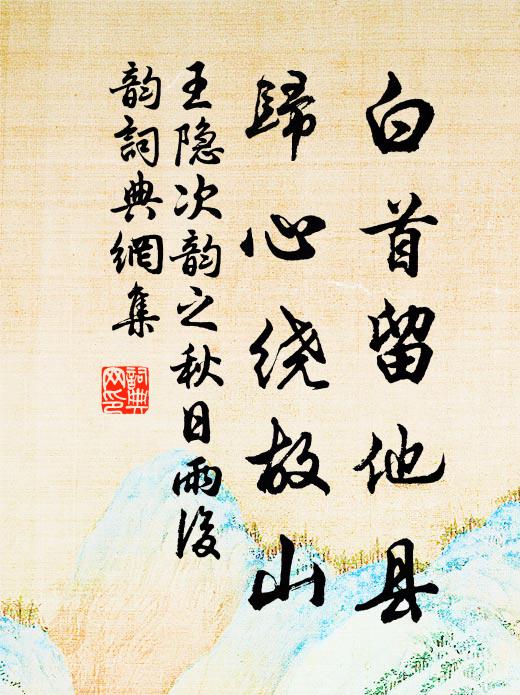 白首留他县
歸心绕故山
王隐次韵之秋日雨后
韵詞典網集
詞典网印